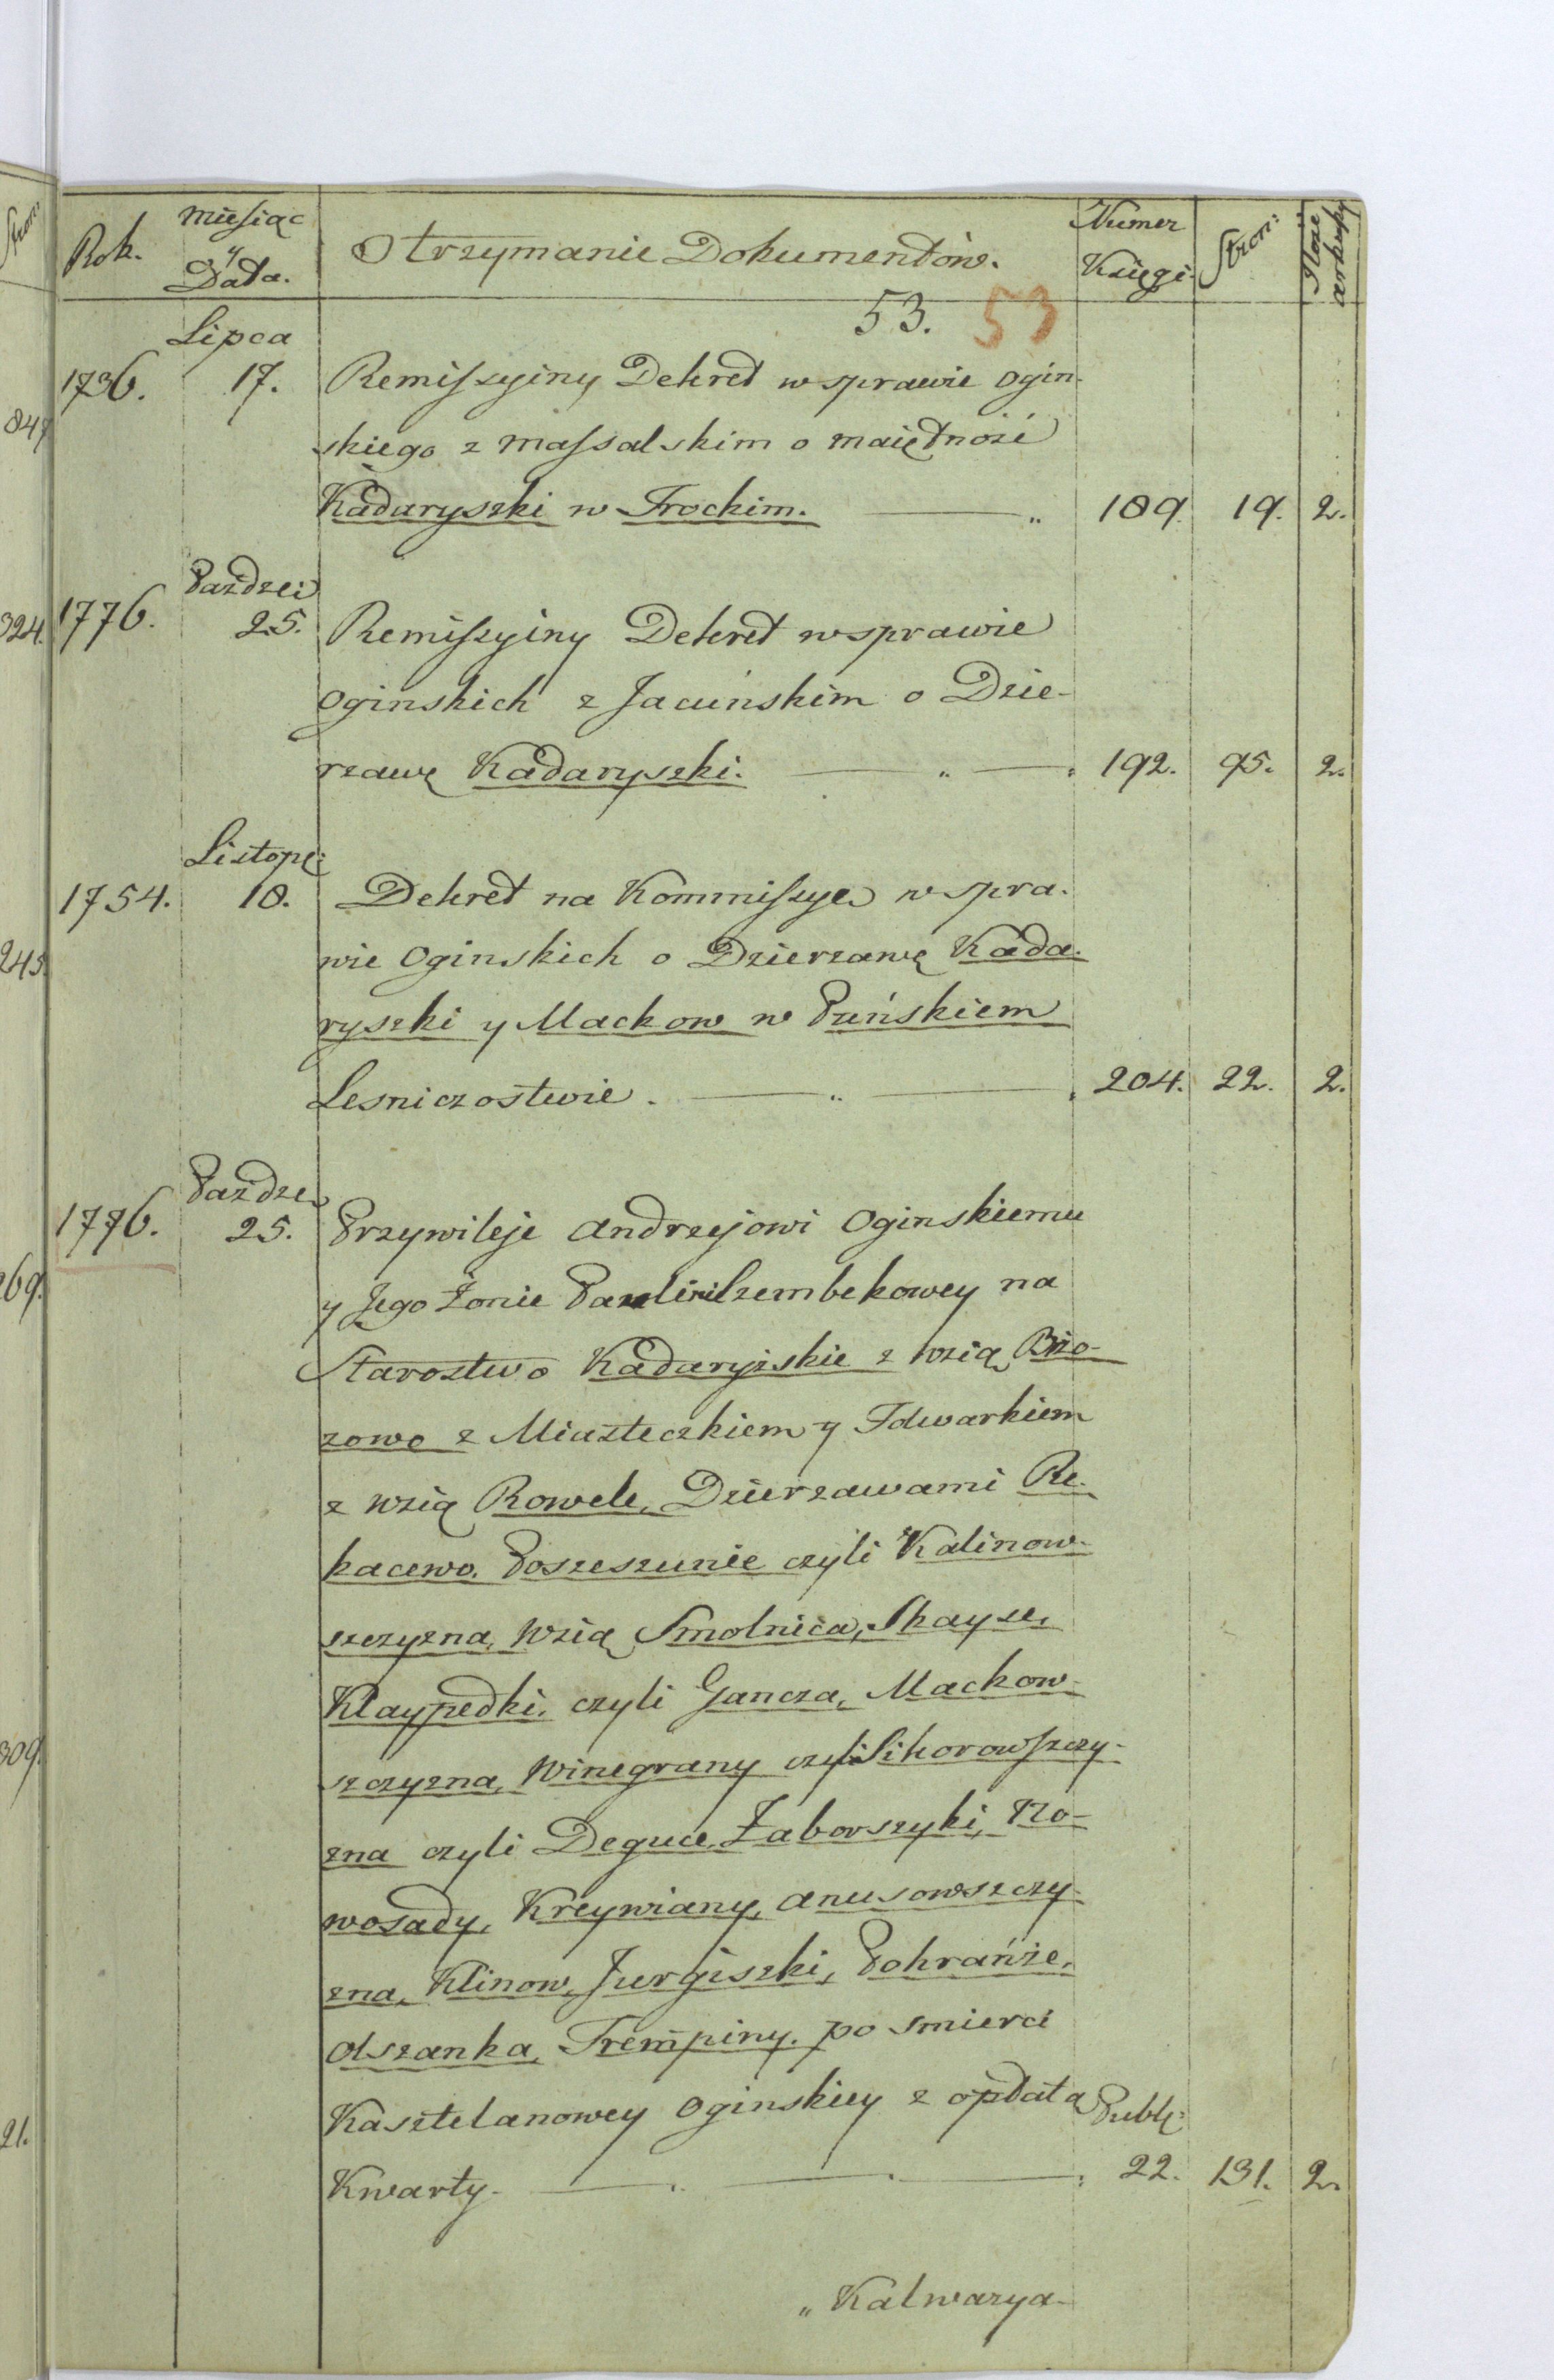 Rok. Miesiąc y Data. Otrzymanie Dokumentów. Numer Księgi Stron: Ilość arkuszy
53. 53
Lipca
1736. 17. Remiſzyiny Dekret w sprawie Ogin-
skiego z Maſsalskim o maiętność
Kadaryszki w Trockim. 189. 19. 2.
Paździei
1776. 25. Remiſzyiny Dekret w sprawie
Oginskich z Jacuńskim o Dzie-
rzawę Kadaryszki. 192. 95. 2.
Listopę:
1754. 18. Dekret na Kommiſzye w spra-
wie Oginskich o Dzierzawę Kada-
ryszki y Mackow w Puńskiem
Lesniczostwie. 204. 22. 2.
Paździe
1776. 25. Przywileje Andrzejowi Oginskiemu
y Jego Żonie Szembekowey na
Starostwo Kadaryskie z wsią Brzo-
zowo z Miasteczkiem y Folwarkiem
z wsią Rowele, Dzierzawami Re-
kacewo. Poszeszunie czyli Kalinow-
szczyzna, wsią Smolnica, Skayze,
Kłaypedki, czyli Gancza, Mackow-
szczyzna, Winegrany czyli Sikorowſzczy-
zna czyli Deguce, Żaborszyki, No-
wosady, Kreywiany, Anusowszczy-
zna, Klinow, Jurgiszki, Pokrańże,
Olszanka, Trempiny. po smierci
Kasztelanowey Oginskiey z opłatą Publ:
Kwarty. 22. 131. 2.
„Kalwarya
847
324.
245.
269.
309.
21.